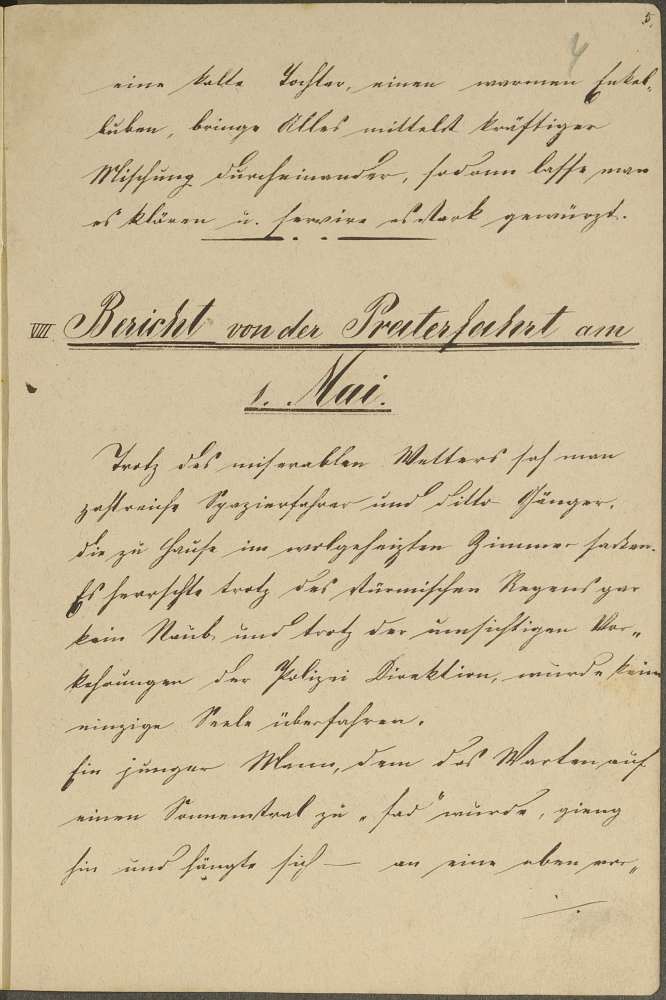 5.
4
eine kalte Tochter, einen warmen Enkel„
buben, bringe Alles mittelst kräftiger
Mischung durcheinander, sodann lasse man
es klären u. servire es stark gewürzt.
VIII Bericht von der Praterfahrt am
1. Mai.
Trotz des miserablen Wetters sah man
zahlreiche Spazierfahrer und ditto Gänger,
die zu Hause im wolgeheizten Zimmer saßen.
Es herrschte trotz des stürmischen Regens gar
kein Staub, und trotz der umsichtigen Vor„
kehrungen der Polizei Direktion, wurde keine
einzige Seele überfahren.
Ein junger Mann, dem das Warten auf
einen Sonnenstral zu „fad“ wurde, gieng
hin und hängte sich — an eine eben vor„